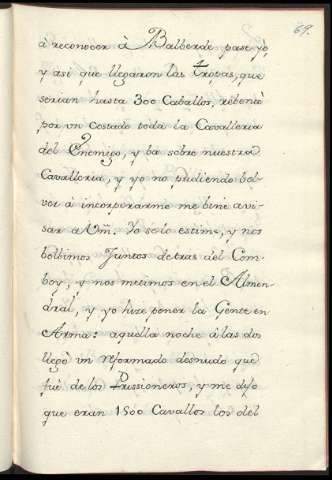 69.
à reconocer à Balberde pase yò,
y asi que llegaron las tropas, que
serian hasta 300 Caballos, rebentò
por vn costado toda la Cavalleria
del Enemigo, y ba sobre nuestra
Cavalleria, y yo no pudiendo bol-
ver à incorporarme me bine a vi-
sar a Vm. Yo se lo estime, y nos
bolbimos Juntos detras del Com-
boy, y nos metimos en el Almen-
dral, y yo hize poner la Gente en
Arma: aquella noche à las dos
llegò vn reformado desnudo que
fuè de los Prissioneros, y me dijo
que eran 1500 Cavallos los del